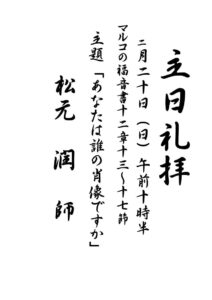 主日礼拝
二月二十日（日）午前十時半
マルコの福音書十二章十三～十七節
主題「あなたは誰の肖像ですか」
松元　潤　師